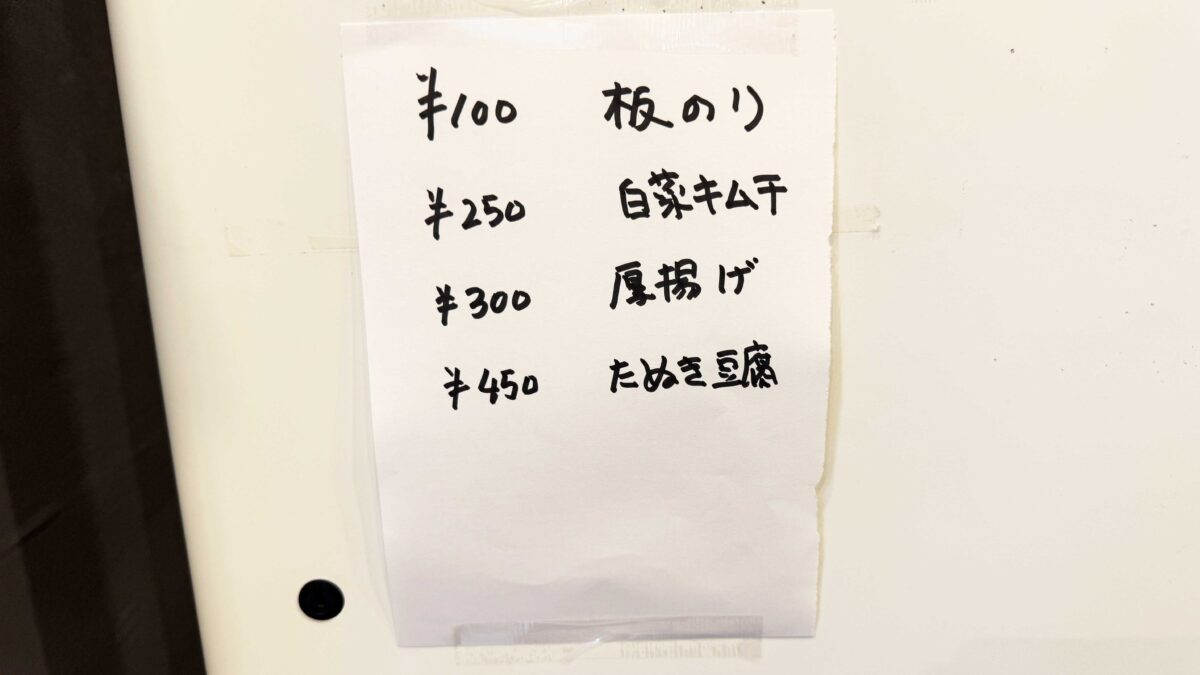 ¥100 板のり
¥250 白菜キムチ
¥300 厚揚げ
¥450 たぬき豆腐